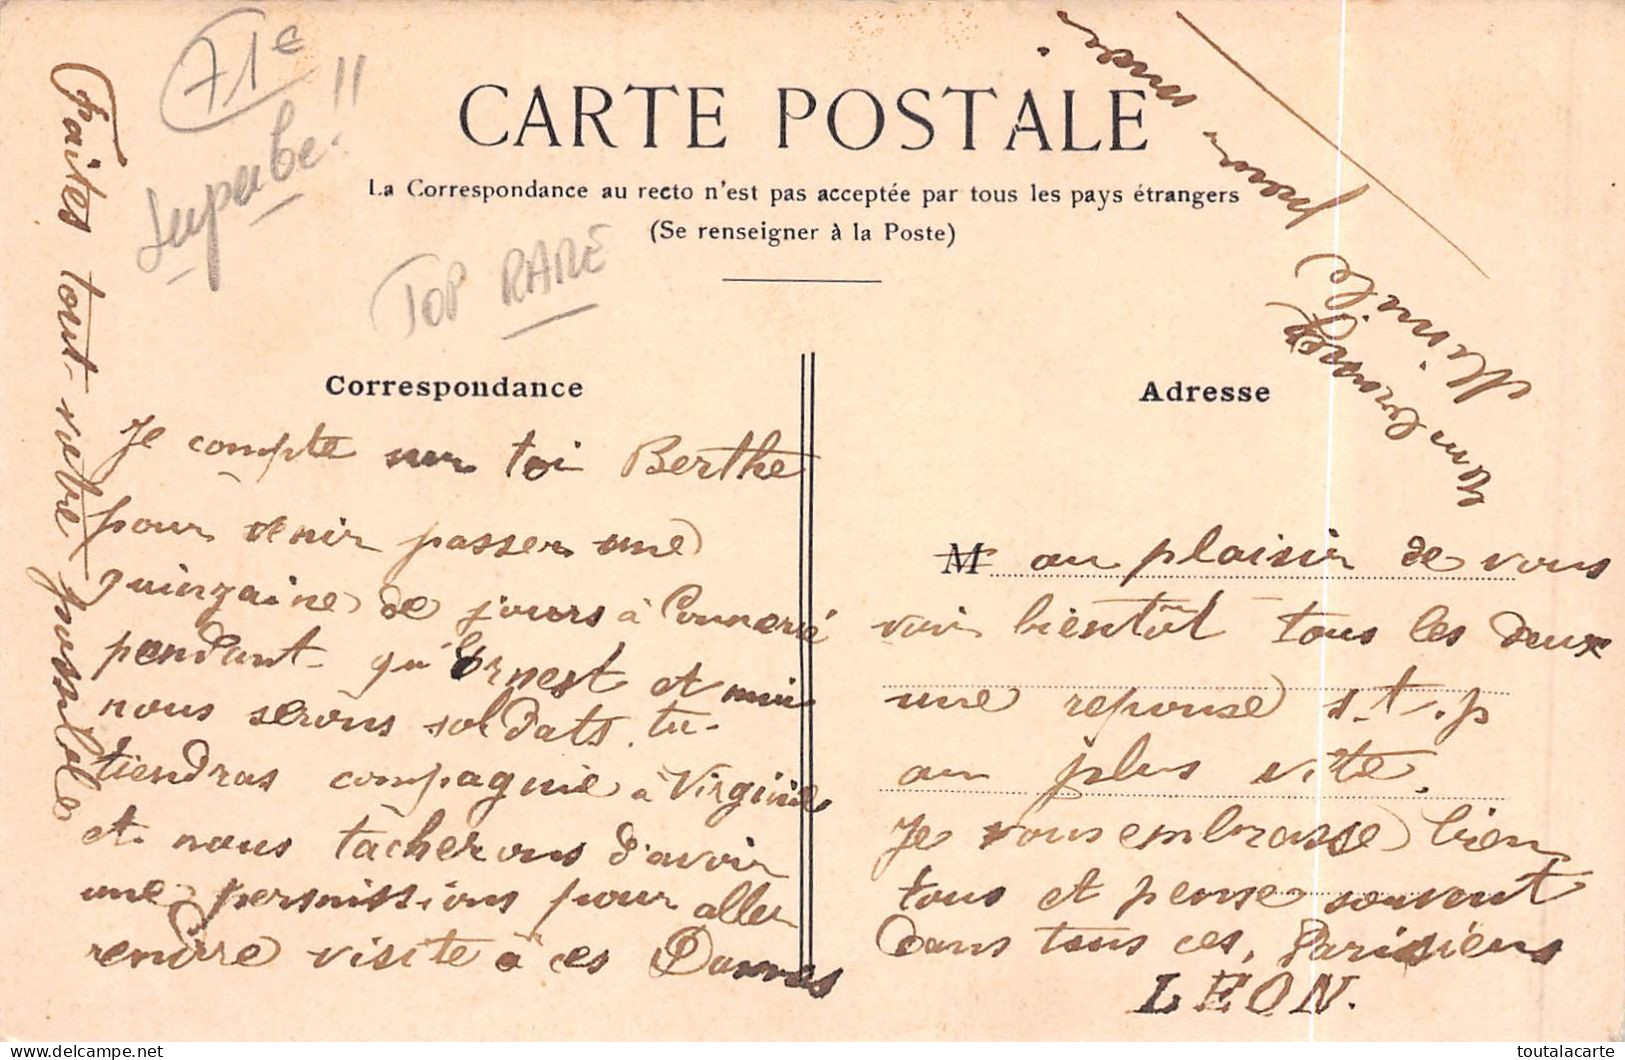 71€
Superbe !!
TOP RARE
CARTE POSTALE
La Correspondance au recto n'est pas acceptée par tous les pays étrangers
(Se renseigner à la Poste)
Correspondance
Je compte sur toi Berthe
pour venir passer une
quinzaine de jours à Connerré
pendant qu'Ernest et moi
nous serons soldats. tu
tiendras compagnie a Virginie
et nous tacherons d'avoir
une permission pour aller
rendre visite à ces Dames
Faites tout votre possible
Adresse
M au plaisir de vous
voir bientôt tous les deux
une reponse s.t.p
au plus vite.
Je vous embrasse bien
tous et pense souvent
dans tous ces Parisiens
LEON.
Vous
pour moi
toutalacarte